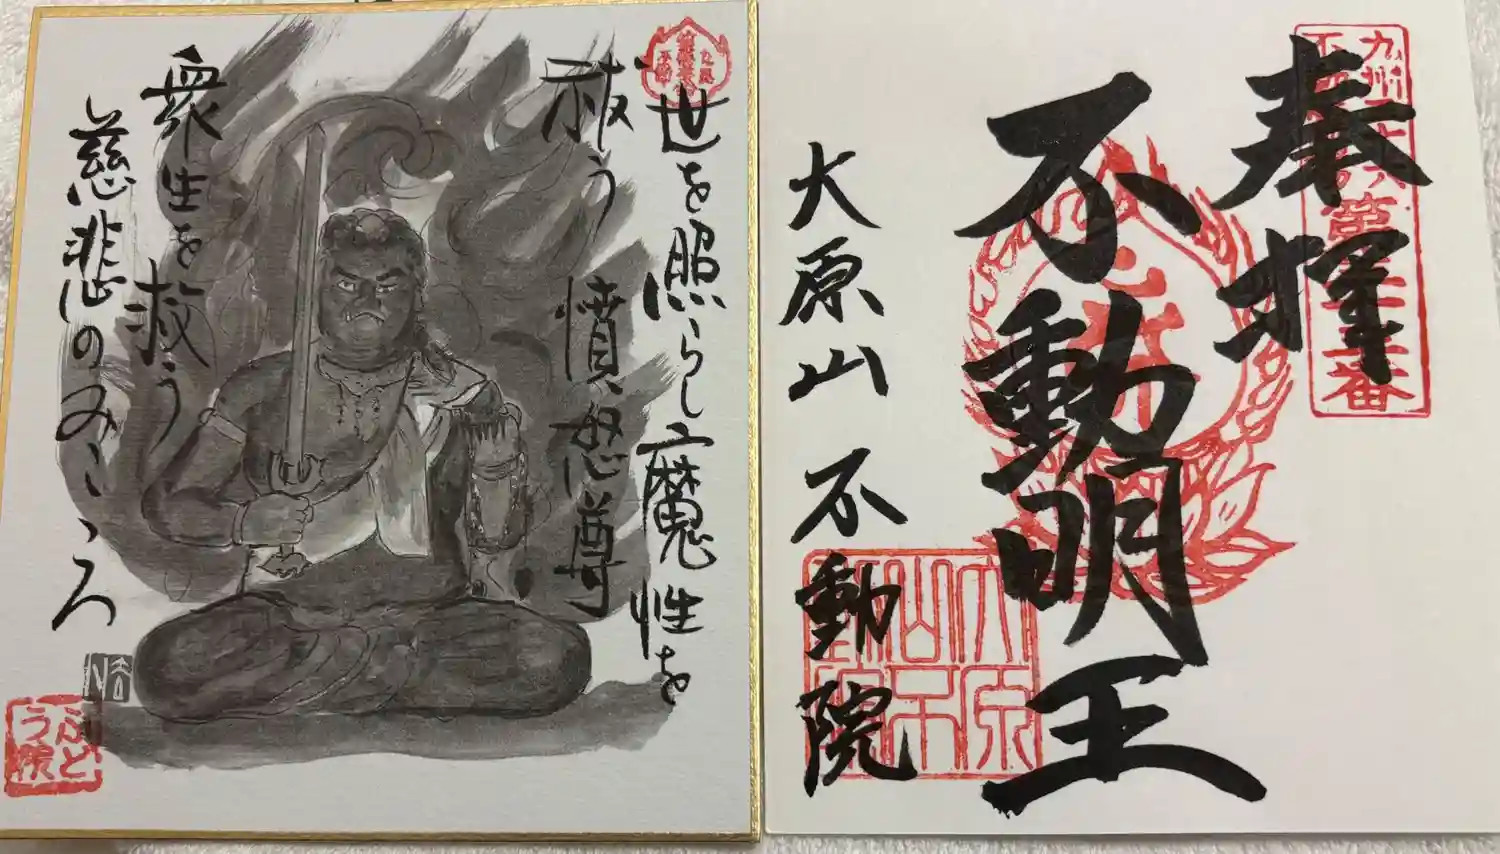 世を照らし魔性を
祓う 憤怒尊
衆生を救う
慈悲のみこころ
ふど
う院
奉拝
不動明王
大原山不動院
大原
山不
動院